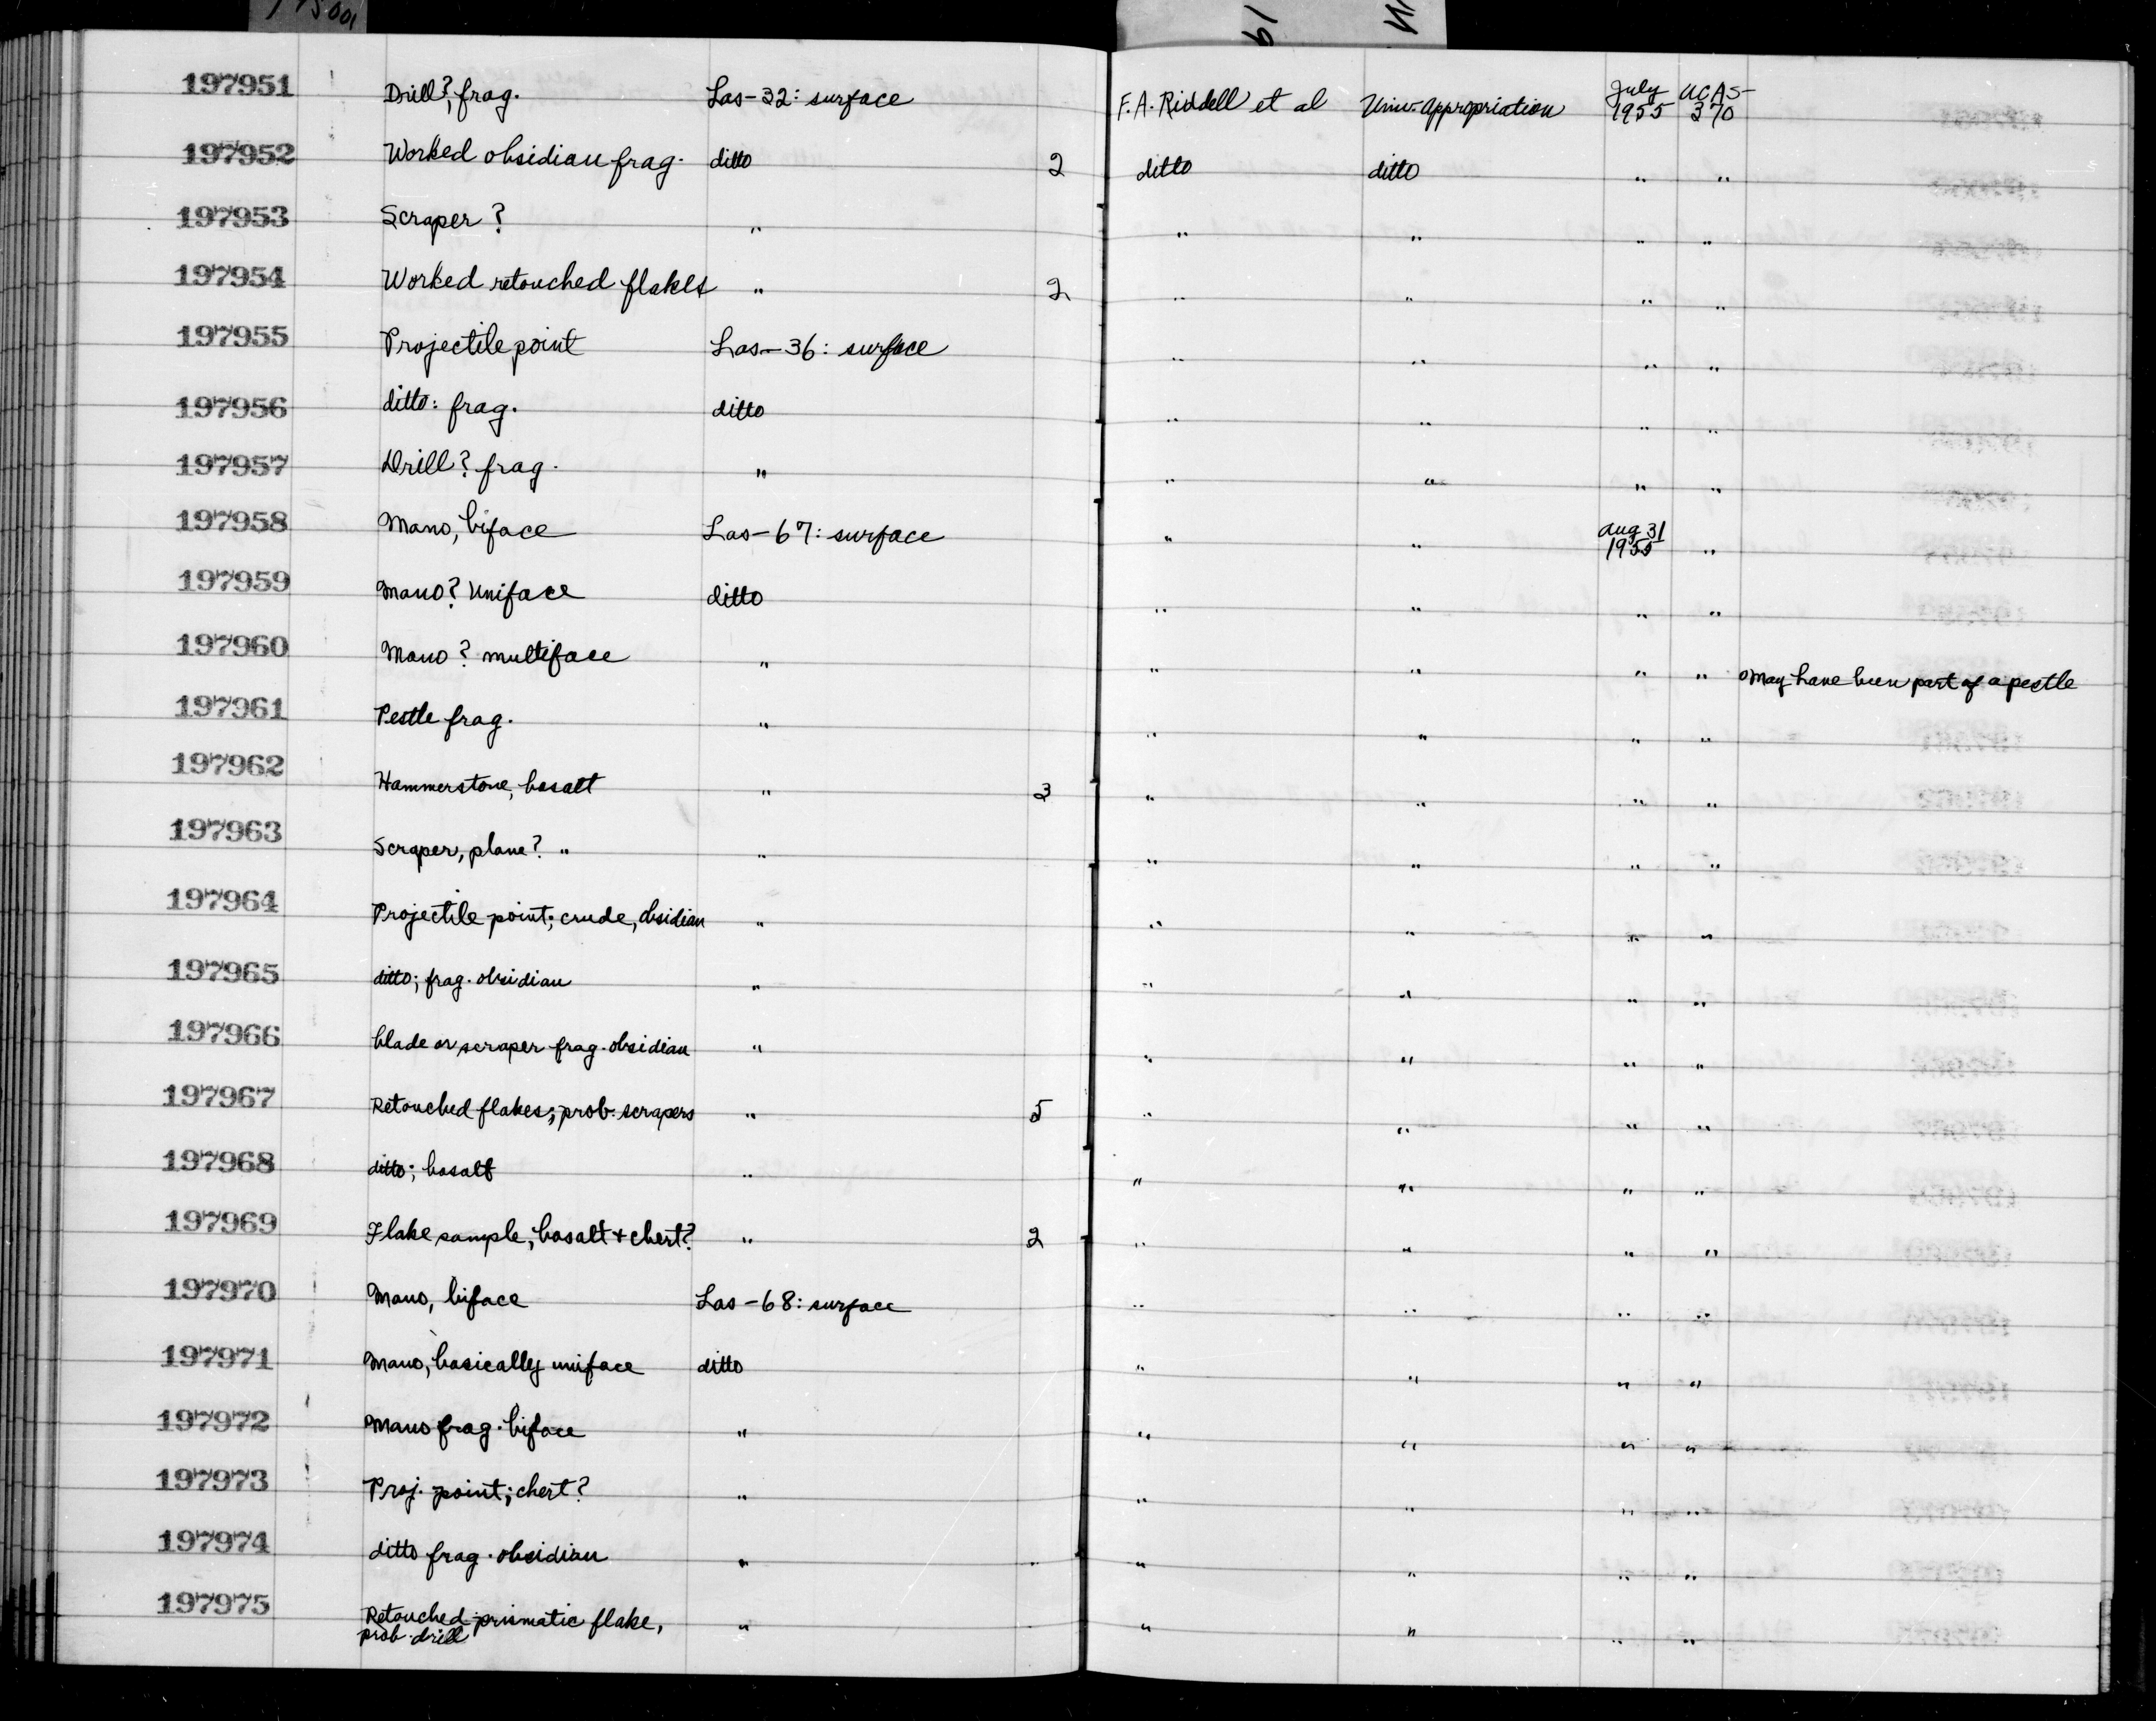 197951 Drill?, frag. Las-32: surface F.A. Riddell et al Univ. Appropriation July 1955 UCAS-370
197952 Worked obsidian frag. ditto 2 ditto ditto " "
197953 Scraper ? " " " " "
197954 Worked retouched flakes " 2 " " " "
197955 Projectile point Las-36: surface " " " "
197956 ditto: frag. ditto " " " "
197957 Drill? frag. " " " " "
197958 Mano, biface Las-67: surface " " Aug 31 1955 "
197959 Mano? Uniface ditto " " " "
197960 Mano? multiface " " " " " May have been part of a pestle
197961 Pestle frag. " " " " "
197962 Hammerstone, basalt " 3 " " " "
197963 Scraper, plane? " " " " " "
197964 Projectile point; crude, obsidian " " " " "
197965 ditto; frag. obsidian " " " " "
197966 blade or scraper frag. obsidian " " " " "
197967 Retouched flakes; prob. scrapers " 5 " " " "
197968 ditto; basalt " " " " "
197969 Flake sample, basalt + chert? " 2 " " " "
197970 Mano, biface Las-68: surface " " " "
197971 Mano, basically uniface ditto " " " "
197972 Mano frag. biface " " " " "
197973 Proj. point; chert? " " " " "
197974 ditto frag. obsidian " " " " "
197975 Retouched prismatic flake, " " " " "
prob. drill